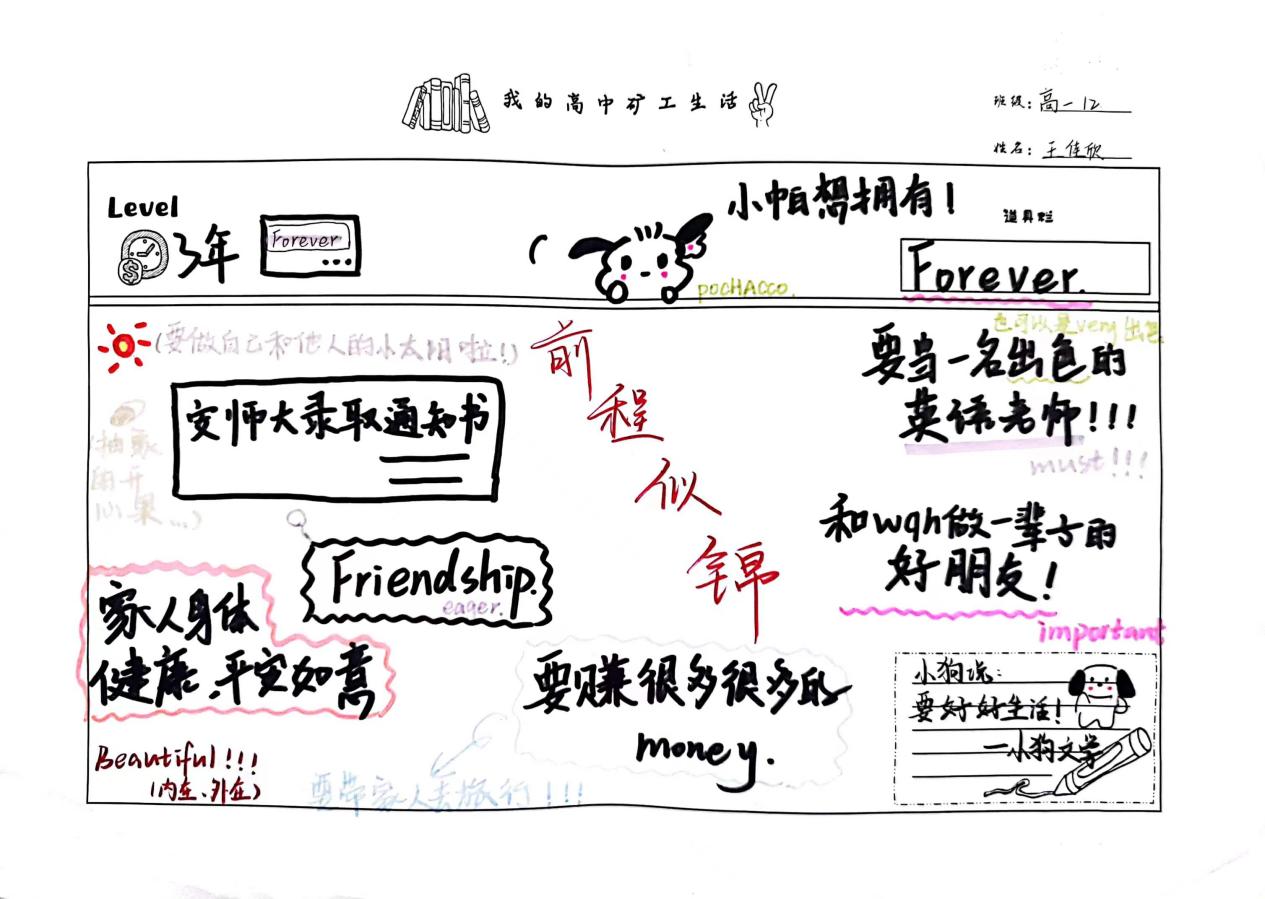 我的高中矿工生活
班级：高一12
姓名：王佳欣
Level
3年
Forever
小帕想拥有！
道具栏
Forever.
pocHACCO.
(要做自己和他人的小太阳啦!)
前程似锦
也可以是very出色
要当一名出色的
英语老师!!!
must!!!
安师大录取通知书
(抽象
开
心果...)
Friendship.
eager.
和wqh做一辈子的
好朋友!
important
家人身体
健康、平安如意
要赚很多很多的
money.
小狗说:
要好好生活!
—小狗文学
Beautiful!!!
(内在、外在)
要带家人去旅行!!!